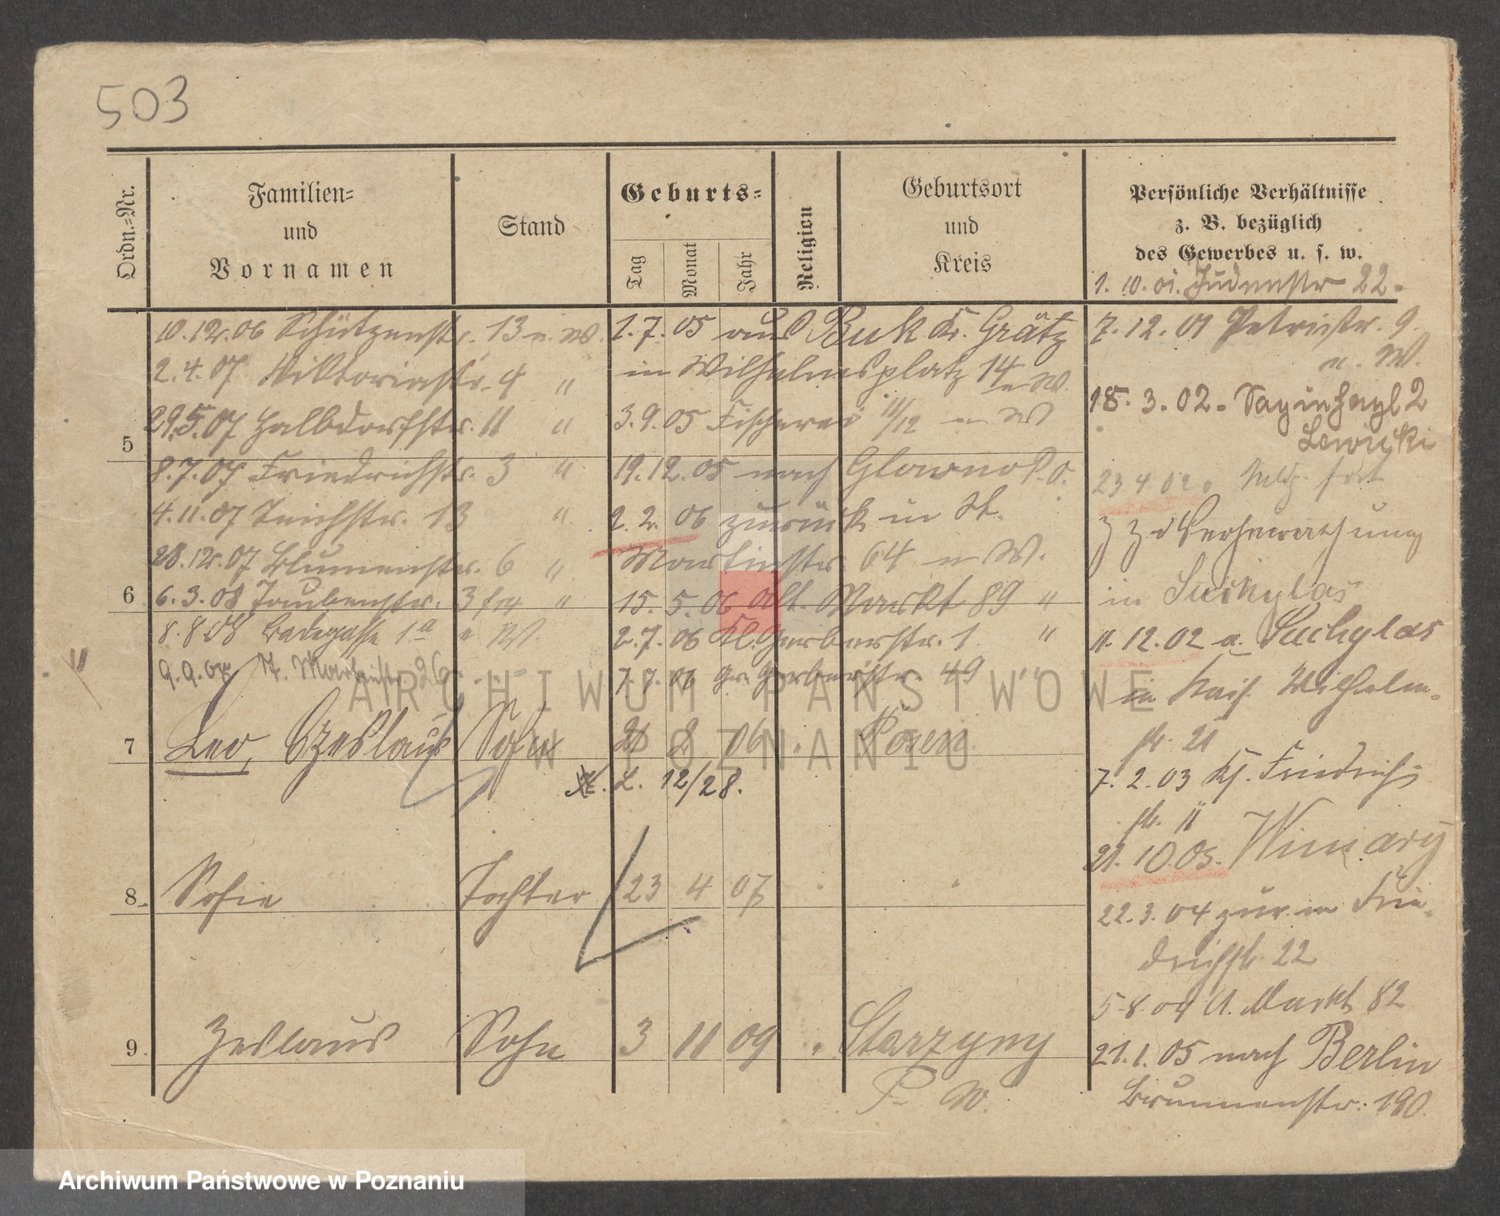 503
Ordn.-Nr.
Familien-
und
Vornamen
Stand
Geburts-
Tag
Monat
Jahr
Religion
Geburtsort
und
Kreis
Persönliche Verhältnisse
z. B. bezüglich
des Gewerbes u. s. w.
1. 10. 01. Judenstr 22.
10.12.06 Schützenstr. 13 u. W.
2.4.07 Viktoriastr. 4 "
29.5.07 Halbdorfstr. 11 "
5
8.7.07 Friedrichstr. 3 "
4.11.07 Teichstr. 13 "
28.12.07 Blumenstr. 6 "
6
6.3.08 Taubenstr. 3 "
8.8.08 Badegasse 1a W.
9.9.08 26
1.7.05 aus Buk Kr. Grätz
in Wilhelmsplatz 14 W.
3.9.05 Fischerei 11/12 W
19.12.05 nach Glowno P.O.
2.2.06 zurück in St.
Martinstr 64 W.
15.5.06 Alt. Markt 89 "
2.7.06 Kl. Gerberstr. 1. "
7.7.06 Gr. Gerberstr. 49 "
7
Leo, Czeslaus Sohn 2 2 06 . Posen
L. 12/28.
8. Sofie Tochter 23 4 07
9. Zeslaus Sohn 3 11 09 " Starzyny
P. W.
7.12.01 Petristr. 9.
u. W.
18.3.02. Sapiehapl 2
Lewicki
23 4 02. fort
z. Z. Verheiratung
in Suchylas
11.12.02 a. Suchylas
in Kais. Wilhelm-
str. 21
7.2.03 Kf. Friedrich-
str. 11
21.10.03. Winiary
22.3.04 zur. in Frie-
drichstr. 22
5.8.04 A. Markt 82
21.1.05 nach Berlin
Brunnenstr. 190.
ARCHIWUM PAŃSTWOWE
W POZNANIU
Archiwum Państwowe w Poznaniu